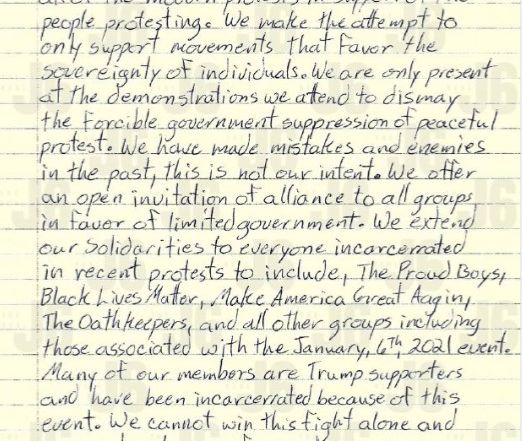 people protesting. We make the attempt to
only support movements that favor the
sovereignty of individuals. We are only present
at the demonstrations we attend to dismay
the forcible government suppression of peaceful
protest. We have made mistakes and enemies
in the past, this is not our intent. We offer
an open invitation of alliance to all groups
in favor of limited government. We extend
our Solidarities to everyone incarcerrated
in recent protests to include, The Proud Boys,
Black Lives Matter, Make America Great Aagin,
The Oathkeepers, and all other groups including
those associated with the January, 6th, 2021 event.
Many of our members are Trump supporters
and have been incarcerrated because of this
event. We cannot win this fight alone and